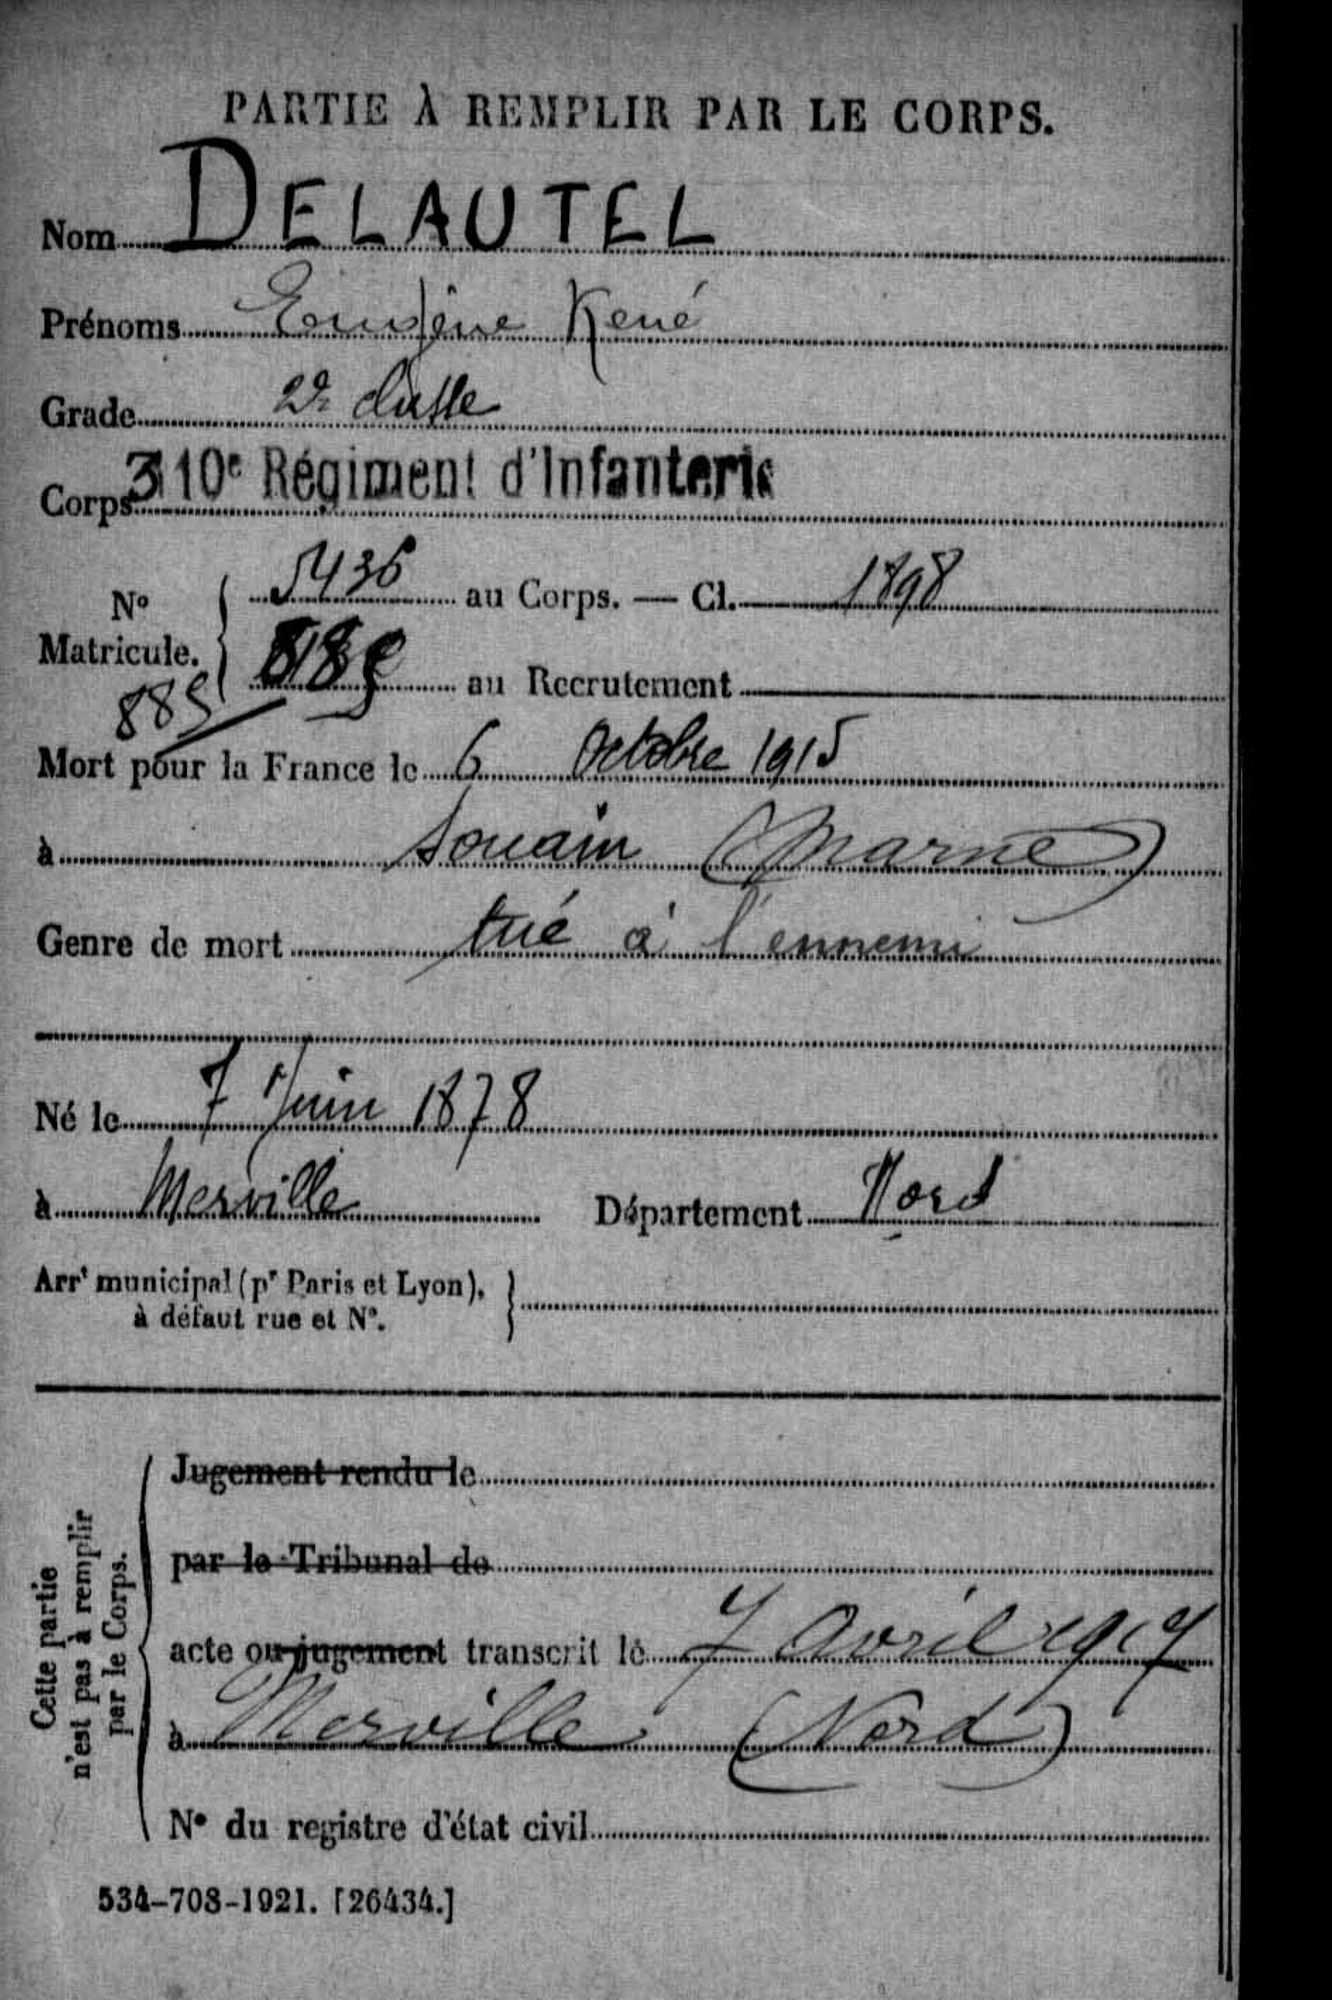 PARTIE À REMPLIR PAR LE CORPS.
Nom DELAUTEL
Prénoms Eugène René
Grade 2e classe
Corps 310e Régiment d'Infanterie
No Matricule. 5436 au Corps. — Cl. 1898
au Recrutement
Mort pour la France le 6 Octobre 1915
à Souain (Marne)
Genre de mort tué à l'ennemi
Né le 7 Juin 1878
à Merville Département Nord
Arrt municipal (pr Paris et Lyon),
à défaut rue et No.
Cette partie
n'est pas à remplir
par le Corps.
Jugement rendu le
par le Tribunal de
acte ou jugement transcrit le 7 Avril 1917
à Merville (Nord)
No du registre d'état civil
534-708-1921. [26434.]